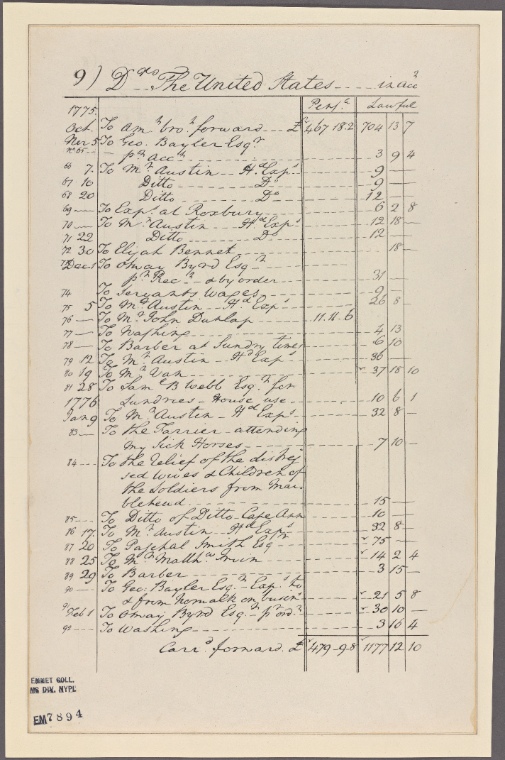 9) Drs. The United States in acct
Pensa. Lawful
1775
Octr. To Amt. bror. forward £ 467 18 2 704 13 7
Nor 5 To Geo. Bayler Esqr.
pr acct. 3 9 4
66 7. To Mr Austin Hd. Exps 9 —
67 10 Ditto Do 9 —
68 20 Ditto Do 12
69 — To Exps. at Roxbury 6 2 8
70 — To Mr Austin Hd. Exps 12 18 —
71 22 Ditto Do 12
72 30 To Elijah Bennet 18 —
73 Decr. 1 To Omay Byrd Esqr.
pr. Rect. & by order 31 —
74 To Servants Wages 9 —
75 5 To Mr Austin Hd Exps 26 8 —
76 — To Mr John Dunlap 11.11.6
77 — To Washing 4 13
78 — To Barber at Sundry times 6 10
79 12 To Mr. Austin Hd Exps 36 —
80 19 To Mr Van 37 18 10
81 28 To Saml B Webb Esqr. for
1776 Sundries House use 10 6 1
Jan 9 To Mr Austin Hd Exps 32 8 —
83 — To the Farrier attending
my Sick Horses 7 10 —
84 — To the relief of the distres
sed Wives & Children of
the Soldiers from Mar
blehead 15 —
85 — To Ditto of Ditto Cape Ann 10 —
86 17. To Mr Austin Hd Exps 32 8 —
87 20 To Paschal Smith Esqr 75 —
88 25 To Mr Matthw Irwin 14 2 4
89 29 To Barber 3 15 —
90 — To Geo: Bayler Esqr. Exps to
& from Norwalk on busins 21 5 8
91 Feb 1 To Omay Byrd Esqr. pr ordr 30 10 —
92 — To Washing 3 16 4
Carrd. forward £ 479 9 8 1177 12 10
EMMET COLL.
MS DIV. NYPL
EM 7894